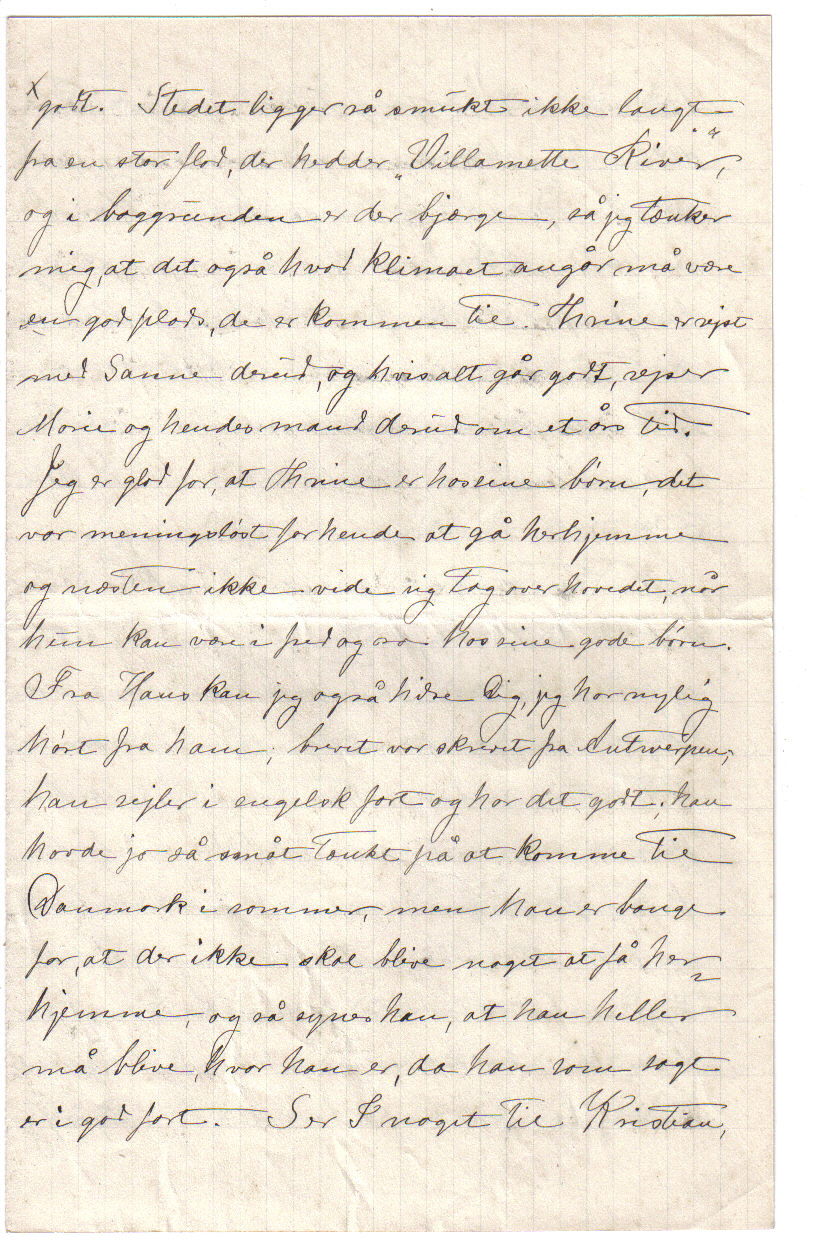 x godt. Stedet ligger så smukt ikke langt
fra en stor flod, der hedder „Villamette River",
og i baggrunden er der bjærge, så jeg tænker
mig, at det også hvad klimaet angår må være
en god plads, de er kommen til. Thrine er rejst
med Sanne derud, og hvis alt går godt, rejser
Marie og hendes mand derud om et års tid.
Jeg er glad for, at Thrine er hos sine børn, det
var meningsløst for hende at gå herhjemme
og næsten ikke vide sig tag over hovedet, når
hun kan være i fred og ro hos sine gode børn.
Fra Hans kan jeg også hilse Dig, jeg har nylig
hørt fra ham; brevet var skrevet fra Antwerpen;
han sejler i engelsk fart og har det godt; han
havde jo så småt tænkt på at komme til
Danmark i sommer, men han er bange
for, at der ikke skal blive noget at få her=
hjemme, og så synes han, at han heller
må blive, hvor han er, da han som sagt
er i god fart. Ser I noget til Kristian,